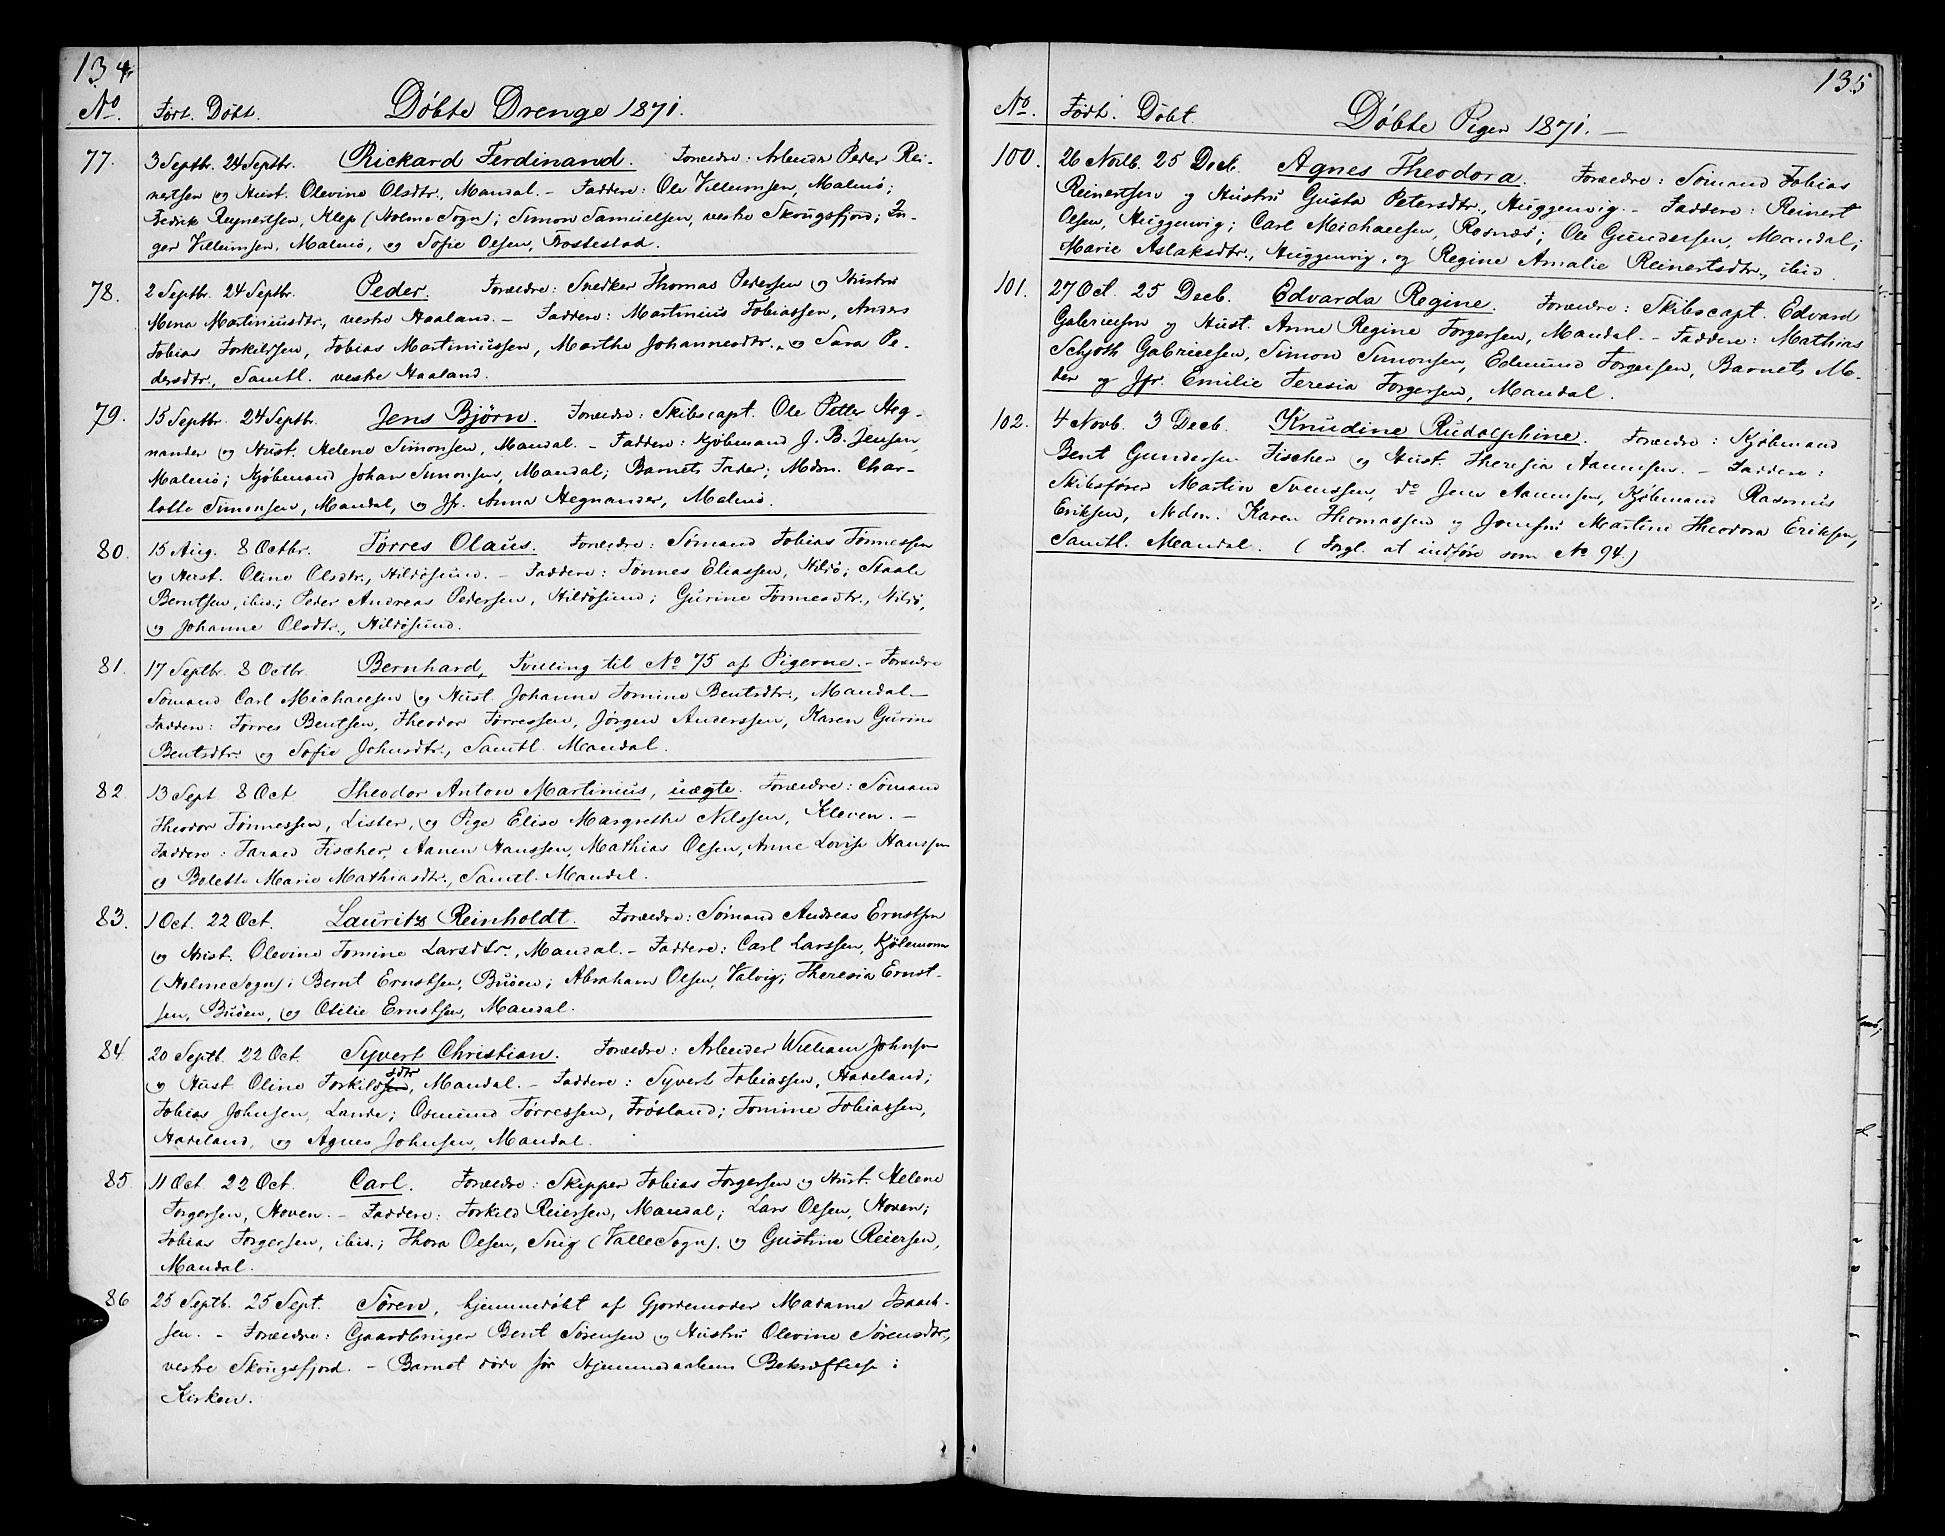 134.
No. Født. Døbt. Døbte Drenge 1871.
77. 3 Septbr. 24 Septbr. Rickard Ferdinand. Forældre: Arbeider Peder Rei-
nertsen og Hust. Olevine Olsdtr., Mandal. – Faddere: Ole Villumsen, Malmø;
Fredrik Reynertsen, Klep (Holme Sogn); Simon Samuelsen, vestre Skougsfjord; In-
ger Villumsen, Malmø, og Sofie Olsen, Tostestad.
78. 2 Septbr. 24 Septbr. Peder. Forældre: Snedker Thomas Pedersen og Hustru
Mena Martiniusdtr., vestre Haaland. – Faddere: Martinius Tobiassen, Anders
Tobias Torkildsen, Tobias Martiniussen, Marthe Johannesdtr., og Sara Pe-
dersdtr., Samtl. vestre Haaland.
79. 15 Septbr. 24 Septbr. Jens Bjørn. Forældre: Skibscapt. Ole Petter Heg-
nander og Hust. Helene Simonsen, Mandal. – Faddere: Kjøbmand J. B. Jensen,
Malmø; Kjøbmand Johan Simonsen, Mandal; Barnets Fader; Mdm. Char-
lotte Simonsen, Mandal, og Jfr. Anna Hegnander, Malmø.
80. 15 Aug. 8 Octbr. Tørres Olaus. Forældre: Sømand Tobias Tønnessen
og Hust. Oline Olsdtr., Hildøsund. – Faddere: Tønnes Eliassen, Hildø; Staale
Berntsen, ibid.; Peder Andreas Pedersen, Hildøsund; Gurine Tønnesdtr., Hildø,
og Johanne Olsdtr., Hildøsund.
81. 17 Septbr. 8 Octbr. Bernhard, Tvilling til No 75 af Pigerne. – Forældre
Sømand Carl Michaelsen og Hust. Johanne Tomine Bentsdtr., Mandal –
Faddere: Tørres Bentsen, Theodor Tørressen, Jørgen Anderssen, Karen Gurine
Bentsdtr. og Sofie Johnsdtr., Samtl. Mandal.
82. 13 Sept 8 Oct Theodor Anton Martinius, uægte. Forældre: Sømand
Theodor Tønnessen, Lister, og Pige Elise Margrethe Nilssen, Kleven. –
Faddere: Tarald Fischer, Aanen Hanssen, Mathias Olsen, Anne Lovise Hanssen
og Bolette Marie Mathiasdtr., Samtl. Mandal.
83. 1 Oct. 22 Oct. Lauritz Reinholdt. Forældre: Sømand Andreas Ernstsen
og Hust. Olevine Tomine Larsdtr., Mandal. – Faddere: Carl Larssen, Kjølemoen
(Holme Sogn); Bernt Ernstsen, Buøen; Abraham Olsen, Valvig; Theresia Ernst-
sen, Buøen, og Otilie Ernstsen, Mandal.
84. 20 Septb. 22 Oct. Syvert Christian. Forældre: Arbeider William Johnsen
og Hust Oline Torkildsdtr, Mandal. – Faddere: Syvert Tobiassen, Haaland;
Tobias Johnsen, Lande; Osmund Tørressen, Frøsland; Tomine Tobiassen,
Haaland, og Agnes Johnsen, Mandal.
85. 11 Oct 22 Oct. Carl. Forældre: Skipper Tobias Torgersen og Hust. Helene
Torgersen, Hoven. – Faddere: Torkild Reiersen, Mandal; Lars Olsen, Hoven;
Tobias Torgersen, ibid.; Thora Olsen, Snig (Valle Sogn), og Gustine Reiersen,
Mandal.
86 25 Septb. 25 Sept. Søren, hjemmedøbt af Gjordemoder Madame Isach-
sen. – Forældre: Gaardbruger Bent Sørensen og Hustru Olevine Sørensdtr,
vestre Skougsfjord. – Barnet døde før Hjemmedaabens Bekræftelse i
Kirken.
135
No. Født. Døbt. Døbte Piger 1871. –
100. 26 Novb. 25 Decb. Agnes Theodora. Forældre: Sømand Tobias
Reinertsen og Hustru Gusta Petersdtr., Huggenvig. – Faddere: Reinert
Olsen, Huggenvig; Carl Michaelsen, Rosnæs; Ole Gundersen, Mandal;
Marie Aslaksdtr., Huggenvig, og Regine Amalie Reinertsdtr., ibid.
101. 27 Oct. 25 Decb. Edvarda Regine. Forældre: Skibscapt. Edvard
Gabrielsen og Hust. Anne Regine Torgersen, Mandal. – Faddere: Mathias
Schjøth Gabrielsen, Simon Simonsen, Edmund Torgersen, Barnets Mo-
der og Jfr. Emilie Teresia Torgersen, Mandal.
102. 4 Novb. 3 Decb. Knudine Rudolphine. Forældre: Kjøbmand
Bent Gundersen Fischer og Hust. Theresia Aanensen. – Faddere:
Skibsfører Martin Svenssen, do Jens Aanensen, Kjøbmand Rasmus
Eriksen, Mdm. Karen Thomassen og Jomfru Martine Theodora Eriksen,
Samtl. Mandal. (Forgl. at indføre som No 94.)